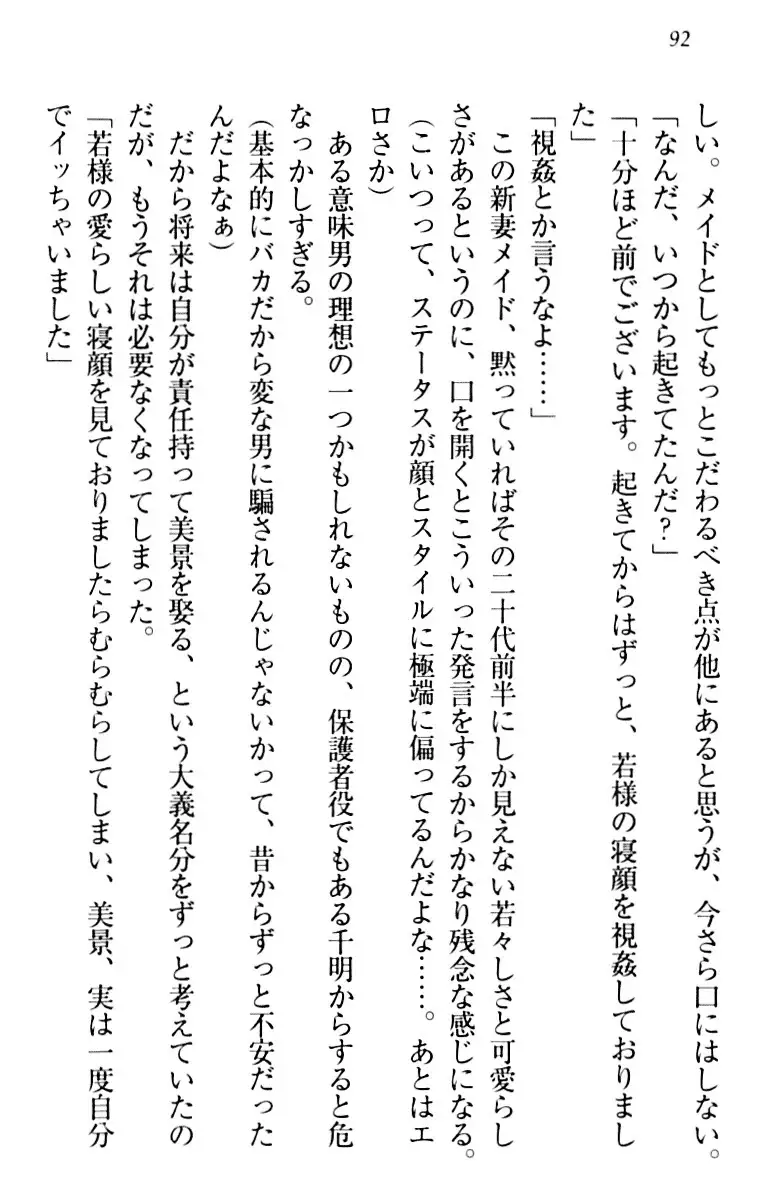 92
しい。メイドとしてもっとこだわるべき点が他にあると思うが、今さら口にはしない。
「なんだ、いつから起きてたんだ?」
「十分ほど前でございます。起きてからはずっと、若様の寝顔を視姦しておりまし
た」
「視姦とか言うなよ……」
　この新妻メイド、黙っていればその二十代前半にしか見えない若々しさと可愛らし
さがあるというのに、口を開くとこういった発言をするからかなり残念な感じになる。
(こいつって、ステータスが顔とスタイルに極端に偏ってるんだよな……。あとはエ
ロさか)
　ある意味男の理想の一つかもしれないものの、保護者役でもある千明からすると危
なっかしすぎる。
(基本的にバカだから変な男に騙されるんじゃないかって、昔からずっと不安だった
んだよなぁ)
　だから将来は自分が責任持って美景を娶る、という大義名分をずっと考えていたの
だが、もうそれは必要なくなってしまった。
「若様の愛らしい寝顔を見ておりましたらむらむらしてしまい、美景、実は一度自分
でイッちゃいました」